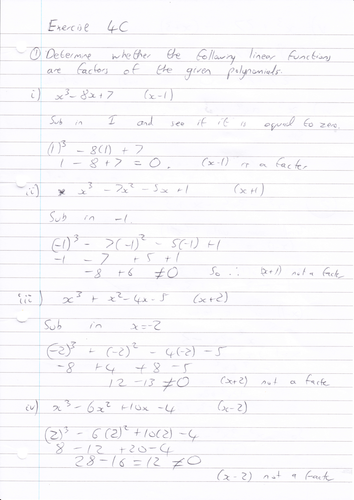 Exercise 4C
① Determine whether the following linear functions
are factors of the given polynomials.
i) x³ - 8x + 7 (x-1)
Sub in 1 and see if it is equal to zero.
(1)³ - 8(1) + 7
1 - 8 + 7 = 0. (x-1) is a factor
ii) x³ - 7x² - 5x + 1 (x+1)
Sub in -1
(-1)³ - 7(-1)² - 5(-1) + 1
-1 - 7 + 5 + 1
-8 + 6 ≠ 0 So ∴ (x+1) not a factor
iii) x³ + x² - 4x - 5 (x+2)
Sub in x=-2
(-2)³ + (-2)² - 4(-2) - 5
-8 + 4 + 8 - 5
12 - 13 ≠ 0 (x+2) not a factor
iv) x³ - 6x² + 10x - 4 (x-2)
(2)³ - 6(2)² + 10(2) - 4
8 - 12 + 20 - 4
28 - 16 = 12 ≠ 0
(x-2) not a factor